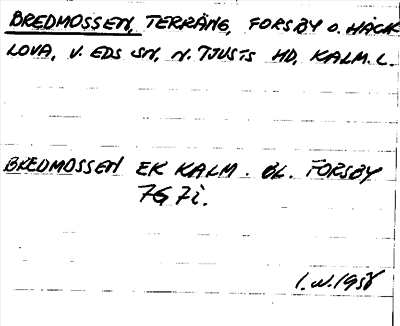 BREDMOSSEN, TERRÄNG, FORSBY O. HÄCK
LOVA, V. EDS SN, N. TJUSTS HD, KALM. L.
BREDMOSSEN EK KALM. BL. FORSBY
7G 7i.
I.W. 1958